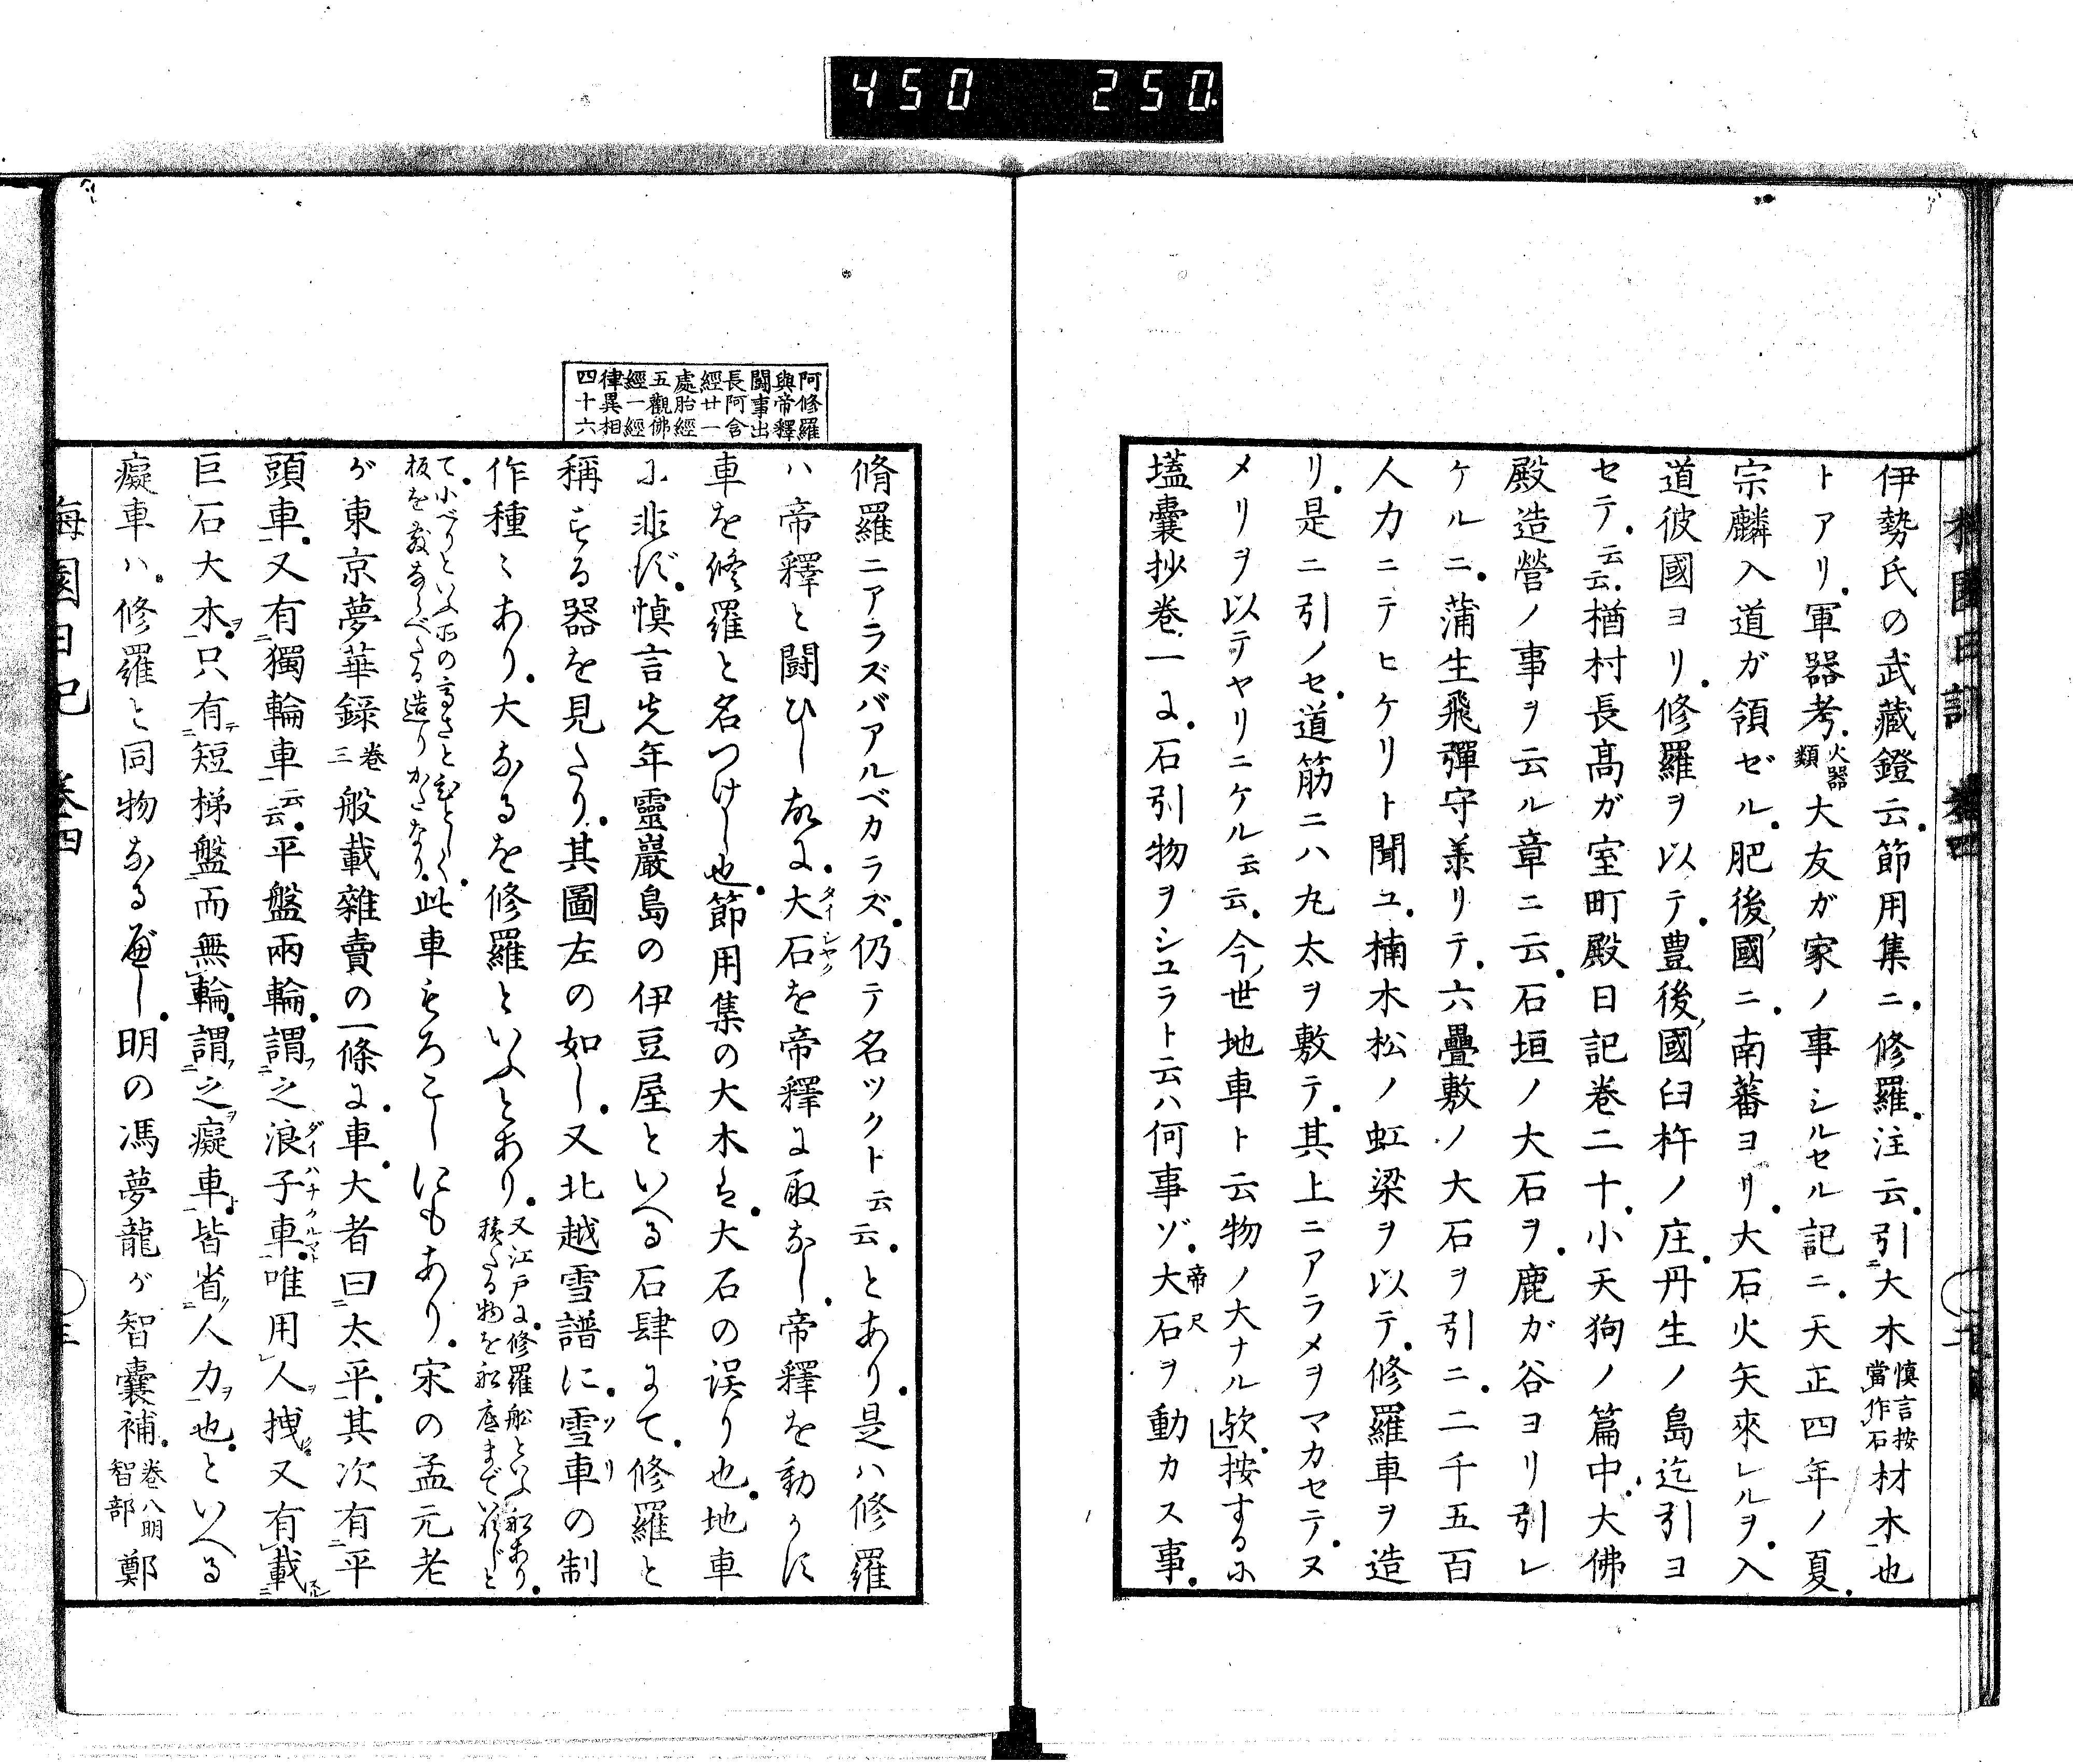 450 250
伊勢氏の武藏鐙云。節用集ニ。修羅。注云。引ニ大木慎言按當作石材木也
トアリ。軍器考。火器類大友ガ家ノ事シルセル記ニ。天正四年ノ夏。
宗麟入道ガ領ゼル。肥後國ニ。南蕃ヨリ。大石火矢來レルヲ。入
道彼國ヨリ。修羅ヲ以テ。豊後國臼杵ノ庄。丹生ノ島迄引ヨ
セテ。云云。楢村長高ガ室町殿日記巻二十。小天狗ノ篇中。大佛
殿造營ノ事ヲ云ル章ニ云。石垣ノ大石ヲ。鹿ガ谷ヨリ引レ
ケルニ。蒲生飛彈守兼リテ。六疊敷ノ大石ヲ引ニ。二千五百
人力ニテヒケリト聞ユ。楠木松ノ虹梁ヲ以テ。修羅車ヲ造
リ。是ニ引ノセ。道筋ニハ丸太ヲ敷テ。其上ニアラメヲマカセテ。ヌ
メリヲ以テヤリニケル云云。今世地車ト云物ノ大ナル歟。按するに
壒囊抄巻一に。石引物ヲシユラト云ハ何事ゾ。大石帝尺ヲ動カス事。
阿修羅
與帝釋
鬪事出
長阿含
經廿一
處胎經
五觀佛
經一經
律異相
四十六
脩羅ニアラズバアルベカラズ。仍テ名ツクト云云。とあり。是ハ修羅
ハ帝釋と闘ひし故に。大石タイシヤクを帝釋に取なし。帝釋を動かす
車を修羅と名つけし也。節用集の大木は。大石の误り也。地車
に非ず。慎言先年靈巖島の伊豆屋といへる石肆にて。修羅と
稱する器を見たり。其圖左の如し。又北越雪譜に。雪車ソリの制
作種ミあり。大なるを修羅といふとあり。又江戸に修羅舩といふ舩あり。積たる物を舩底までいれじと
て。小べりといふ所の高さとひとしく。板を敷ならべたる造りかたなり。此車もろこしにもあり。宋の孟元老
が東京夢華錄巻三般載雜賣の一條に。車。大者曰ニ太平一。其次有ニ平
頭車一。又有ニ獨輪車一云云。平盤兩輪。謂ニ之浪子車一ダイハチクルマト。唯用レ人ヲ拽。又有レ載ニスル
巨石大木一ヲ。只有ニテ短梯盤一而無レ輪。謂ニフ之ヲ癡車一ト。皆省ニク人力一ヲ也。といへる
癡車ハ。修羅と同物なるべし。明の馮夢龍が智囊補。巻八明智部鄭
梅園日記 巻四 三